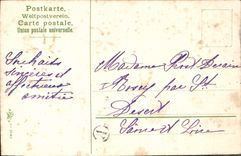 Postkarte.
Weltpostverein.
Carte postale.
Union postale universelle.
Souhaits
sincères et
affectueux
amitiés
Madame
par St
Desert
Saone et Loire